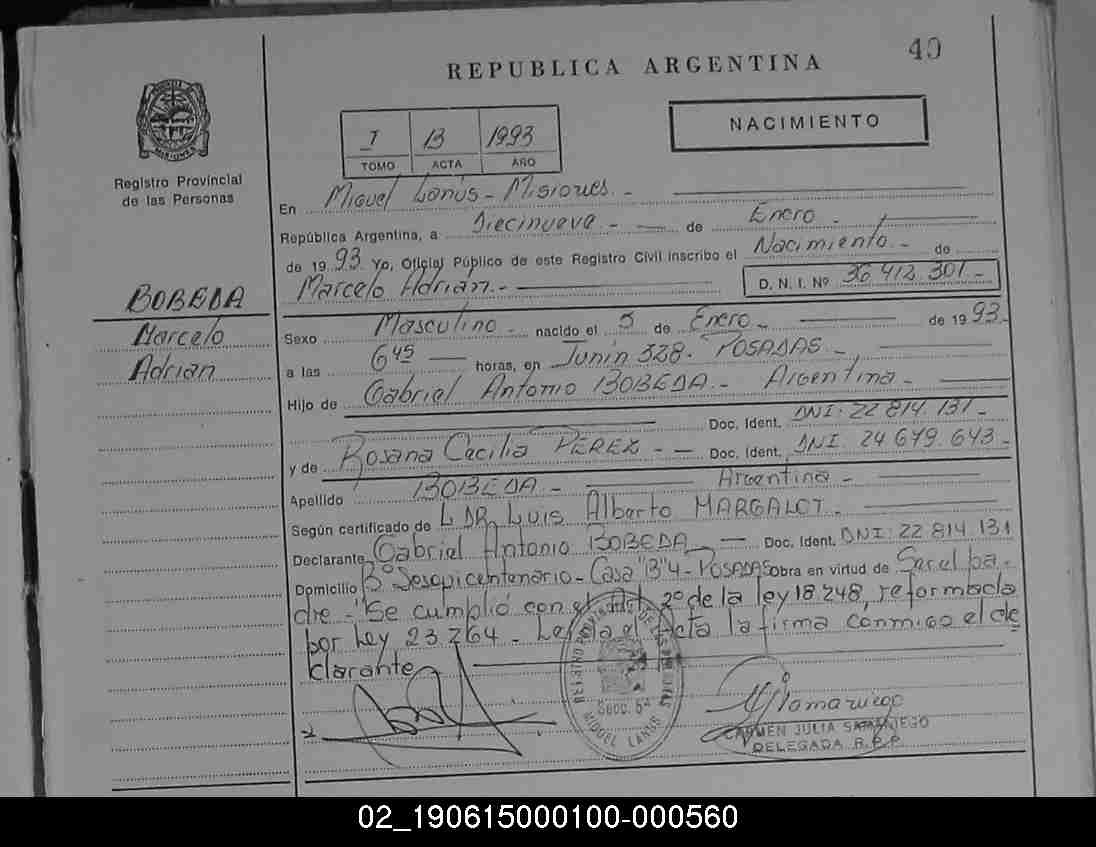 40
REPUBLICA ARGENTINA
MISIONES
Registro Provincial
de las Personas
I 13 1993
TOMO ACTA AÑO
NACIMIENTO
En Miguel Lanús - Misiones. -
República Argentina, a Diecinueve. - de Enero -
de 1993 Yo, Oficial Público de este Registro Civil inscribo el Nacimiento - de
Marcelo Adrián. - D. N. I. Nº 36 412 301 -
BOBEDA
Marcelo
Adrian
Sexo Masculino - nacido el 5 de Enero - de 1993.
a las 6 45 horas, en Junín 328. POSADAS. -
Hijo de Gabriel Antonio BOBEDA. - Argentina -
Doc. Ident. DNI: 22 814. 131 -
y de Rosana Cecilia PEREZ - - Doc. Ident. DNI 24 679. 643 -
Apellido BOBEDA - Argentina -
Según certificado de DR. Luis Alberto MARGALOT. -
Declarante Gabriel Antonio BOBEDA - Doc. Ident. DNI: 22 814 131
Domicilio Bº Sesquicentenario - Casa "B" 4 - POSADAS Obra en virtud de Ser el pa -
dre - "Se cumplió con el Art 2º de la ley 18.248, reformada
por Ley 23 264 - Leída el Acta la firma conmigo el de
clarante
REGISTRO PROVINCIAL DE LAS PERSONAS
Secc. 5ª
MIGUEL LANUS
CARMEN JULIA SAMANIEGO
DELEGADA R.P.P.
02_190615000100-000560